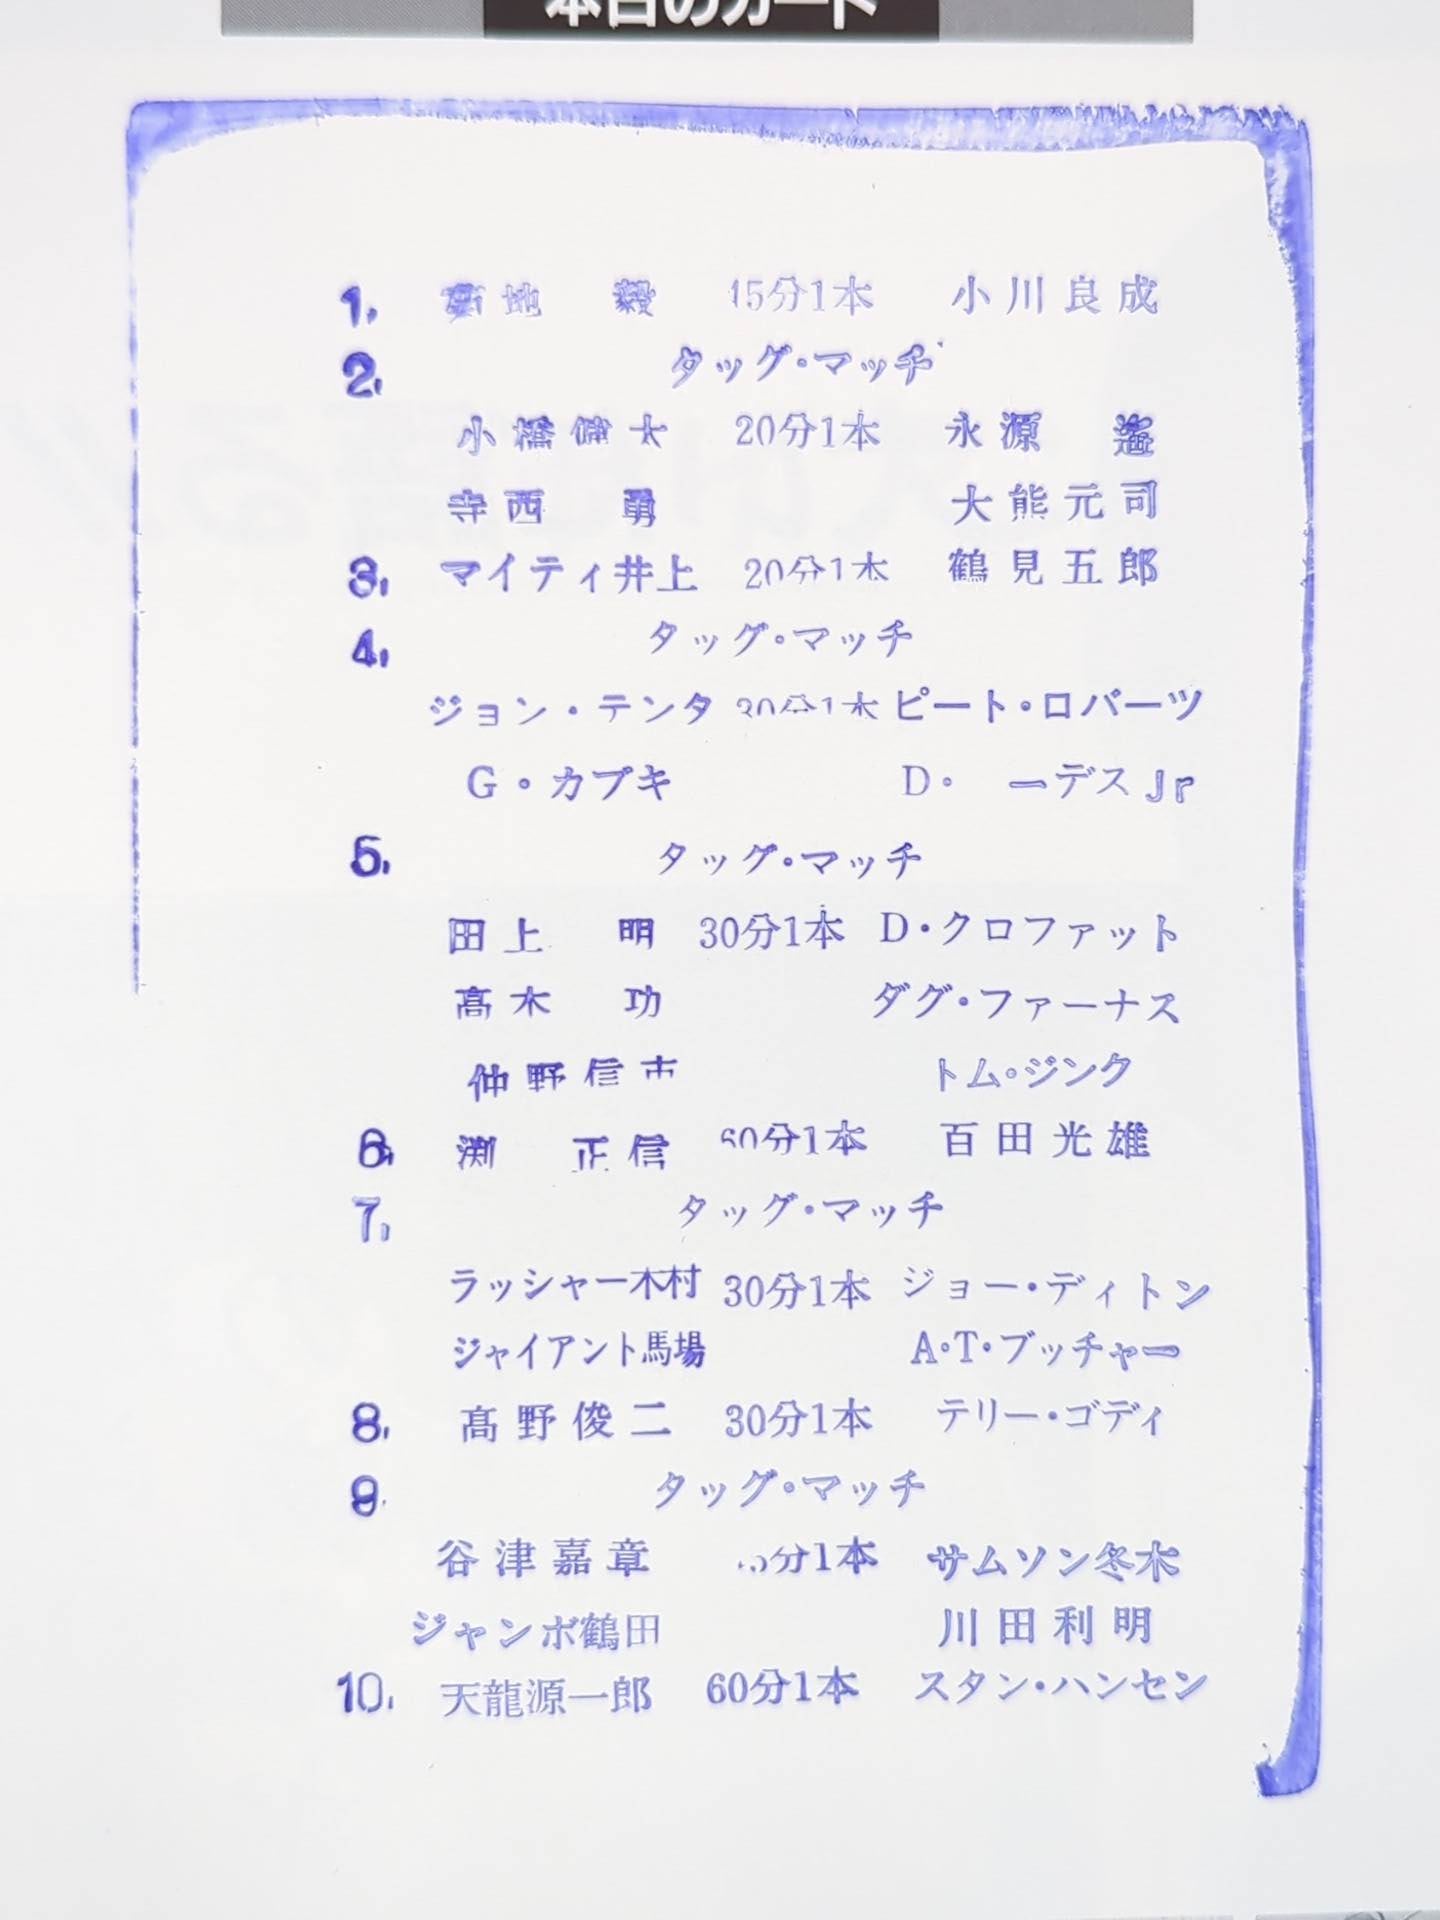 本日のカード
1. 菊地 毅 15分1本 小川良成
2. タッグ・マッチ
小橋健太 20分1本 永源 遙
寺西 勇 大熊元司
3. マイティ井上 20分1本 鶴見五郎
4. タッグ・マッチ
ジョン・テンタ 30分1本 ピート・ロバーツ
G・カブキ D・ ーデスJr
5. タッグ・マッチ
田上 明 30分1本 D・クロファット
高木 功 ダグ・ファーナス
仲野信市 トム・ジンク
6. 渕 正信 60分1本 百田光雄
7. タッグ・マッチ
ラッシャー木村 30分1本 ジョー・ディトン
ジャイアント馬場 A・T・ブッチャー
8. 高野俊二 30分1本 テリー・ゴディ
9. タッグ・マッチ
谷津嘉章 5分1本 サムソン冬木
ジャンボ鶴田 川田利明
10. 天龍源一郎 60分1本 スタン・ハンセン